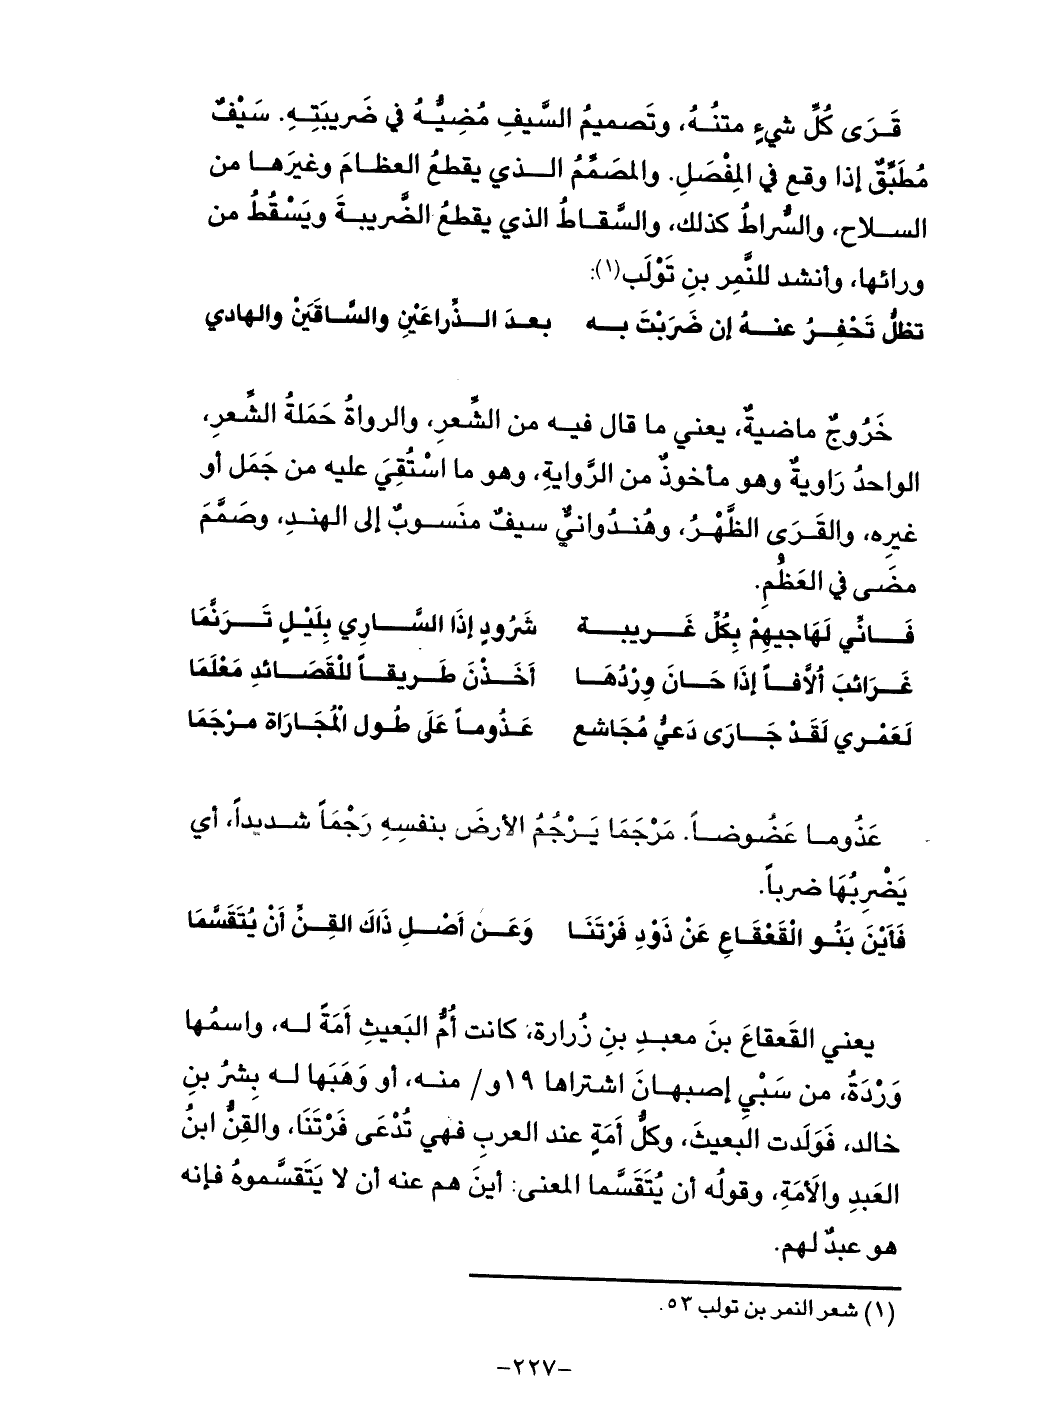 قَـرَى كُلِّ شيءٍ متنُـهُ، وتَصميمُ السَّيفِ مُضِيُّـهُ في ضَريبَتِـهِ. سَيْفٌ
مُطَبِّقٌ إذا وقع في المِفْصَلِ. والمصَمِّمُ الـذي يقطعُ العظامَ وغيرَهـا من
السـلاح، والسُّراطُ كذلك، والسَّقـاطُ الذي يقطعُ الضَّريبـةَ ويَسْقُطُ من
ورائها، وأنشد للنَّمِر بنِ تَوْلَب(١):
تظلُّ تَحْفِـرُ عنـهُ إن ضَرَبْتَ بـه    بعـدَ الـذِّراعَيْنِ والسَّـاقَيَنْ والهادي
خَرُوجٌ ماضيةٌ، يعني ما قال فيـه من الشِّعرِ، والرواةُ حَمَلةُ الشِّعرِ،
الواحدُ رَاويةٌ وهو مأخوذٌ من الرَّوايةِ، وهو ما اسْتُقِيَ عليه من جَمَل أو
غيرِه، والقَـرَى الظَّهْرُ، وهُندُوانيٌّ سيفٌ منَسـوبٌ إلى الهندِ، وصَمَّمَ
مضَـى في العَظْمِ.
فَـإنِّي لَهَاجيهِمْ بِكُلِّ غَـريبـة    شَرُودٍ إذَا السَّـارِي بِلَيْـلٍ تَـرَنَّمَا
غَـرائبَ أُلاَّفـاً إذَا حَـانَ وِرْدُهَـا    أخَـذْنَ طَـريقـاً للْقَصَـائدِ مَعْلَمَا
لَعَمْـري لَقَـدْ جَـارَى دَعيُّ مُجَاشع    عَـذُومـاً عَلَى طُـول الْمُجَارَاة مـرْجَمَا
عَذُومـا عَضُوضـاً. مَرْجَمَا يَـرْجُمُ الأرضَ بنفسِهِ رَجْمَاً شـديداً، أي
يَضْرِبُهَا ضرباً.
فَأيْنَ بَنُـو الْقَعْقَـاعِ عَنْ ذَوْدِ فَرْتَنَـا    وَعَـن أصْـلِ ذَاكَ القِـنِّ أنْ يُتَقَسَّمَا
يعني القَعقاعَ بنَ معبـدِ بنِ زُرارة، كانت أُمُّ البَعيثِ أَمَةً لـه، واسمُها
وَرْدَةُ، من سَبْيِ إصبهـانَ اشتراها ١٩و/ منـه، أو وَهَبَها لـه بِشرُ بنِ
خالد، فَوَلَدت البعيثَ، وكلُّ أمَةٍ عند العربِ فهي تُدْعَى فَرْتَنَا، والقِنُّ ابنُ
العَبدِ والأَمَةِ، وقولُه أن يُتَقَسَّما المعنى: أينَ هم عنه أن لا يَتَقسَّموهُ فإنه
هو عبدٌ لهم.
(١) شعر النمر بن تولب ٥٣.
-٢٢٧-